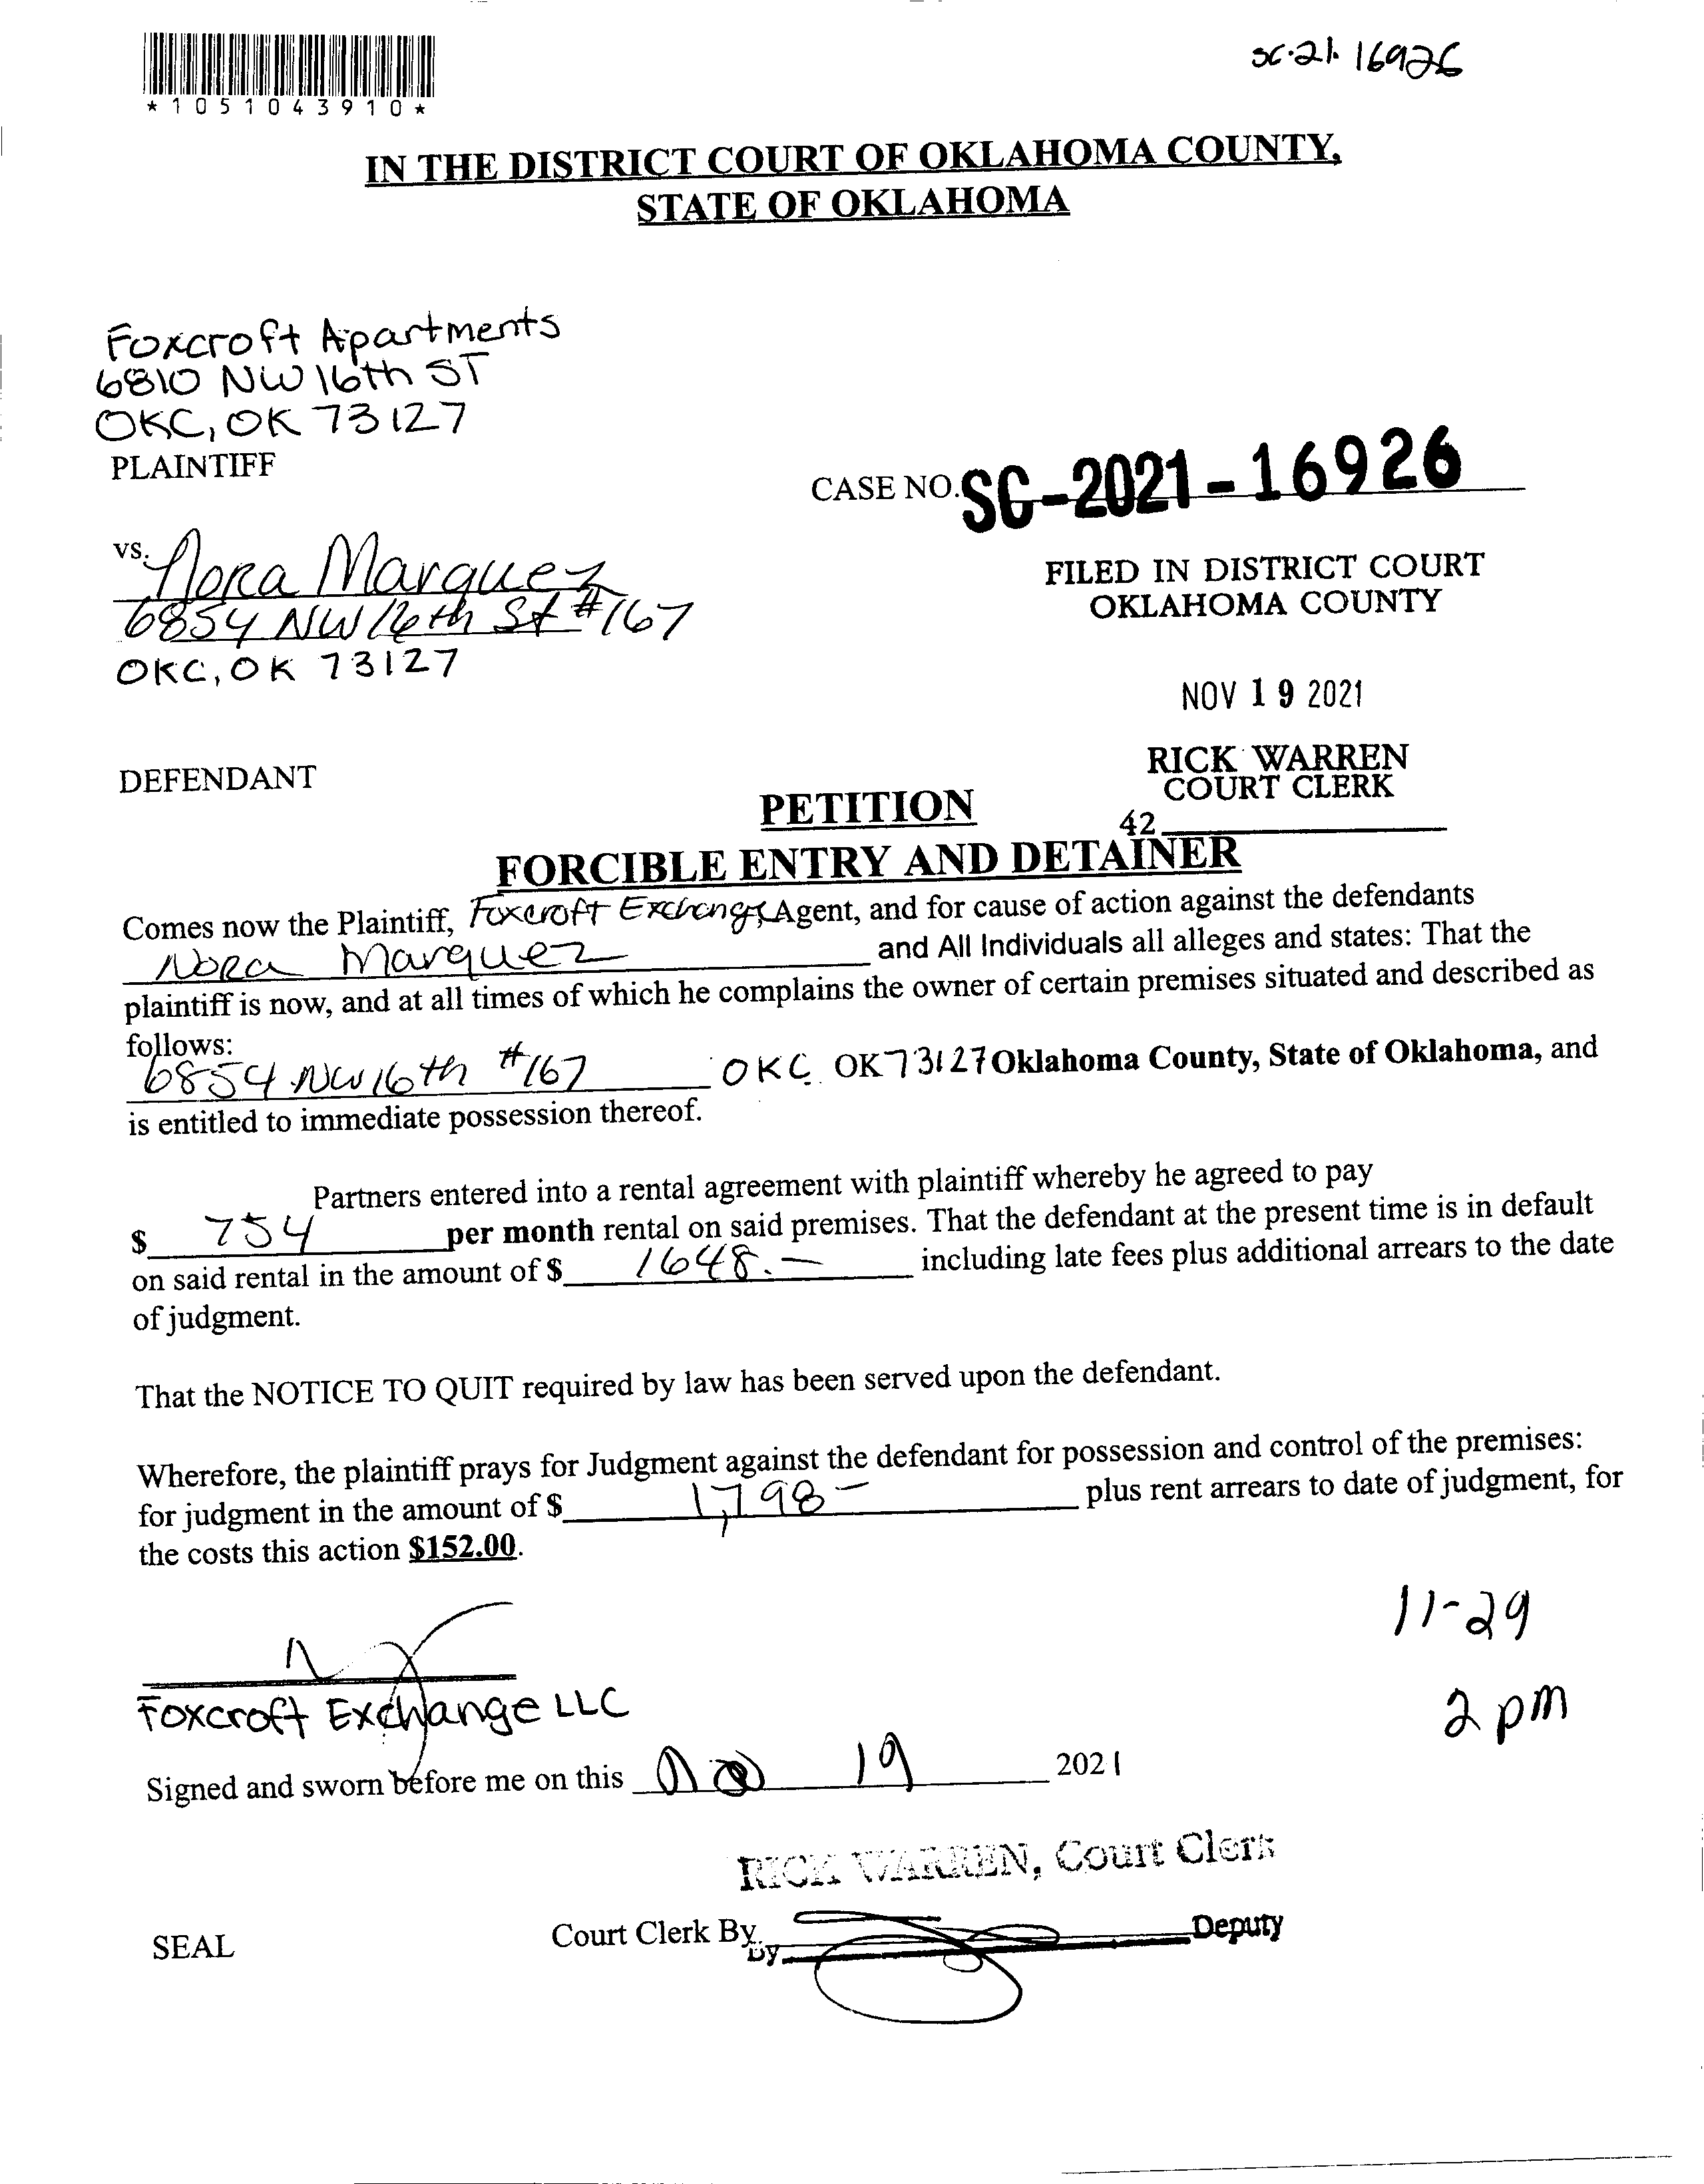 *1051043910*
SC-21-16926
IN THE DISTRICT COURT OF OKLAHOMA COUNTY,
STATE OF OKLAHOMA
Foxcroft Apartments
6810 NW 16th ST
OKC, OK 73127
PLAINTIFF
CASE NO. SC-2021-16926
vs. Nora Marquez
6854 NW 16th St #167
OKC, OK 73127
FILED IN DISTRICT COURT
OKLAHOMA COUNTY
NOV 19 2021
RICK WARREN
COURT CLERK
42
DEFENDANT
PETITION
FORCIBLE ENTRY AND DETAINER
Comes now the Plaintiff, Foxcroft Exchange, Agent, and for cause of action against the defendants
Nora Marquez and All Individuals all alleges and states: That the
plaintiff is now, and at all times of which he complains the owner of certain premises situated and described as
follows:
6854 NW 16th #167 OKC OK 73127 Oklahoma County, State of Oklahoma, and
is entitled to immediate possession thereof.
Partners entered into a rental agreement with plaintiff whereby he agreed to pay
$ 754 per month rental on said premises. That the defendant at the present time is in default
on said rental in the amount of $ 1648.— including late fees plus additional arrears to the date
of judgment.
That the NOTICE TO QUIT required by law has been served upon the defendant.
Wherefore, the plaintiff prays for Judgment against the defendant for possession and control of the premises:
for judgment in the amount of $ 1,798 — plus rent arrears to date of judgment, for
the costs this action $152.00.
11-29
2 pm
Foxcroft Exchange LLC
Signed and sworn before me on this 19 2021
RICK WARREN, Court Clerk
SEAL
Court Clerk By
By Deputy